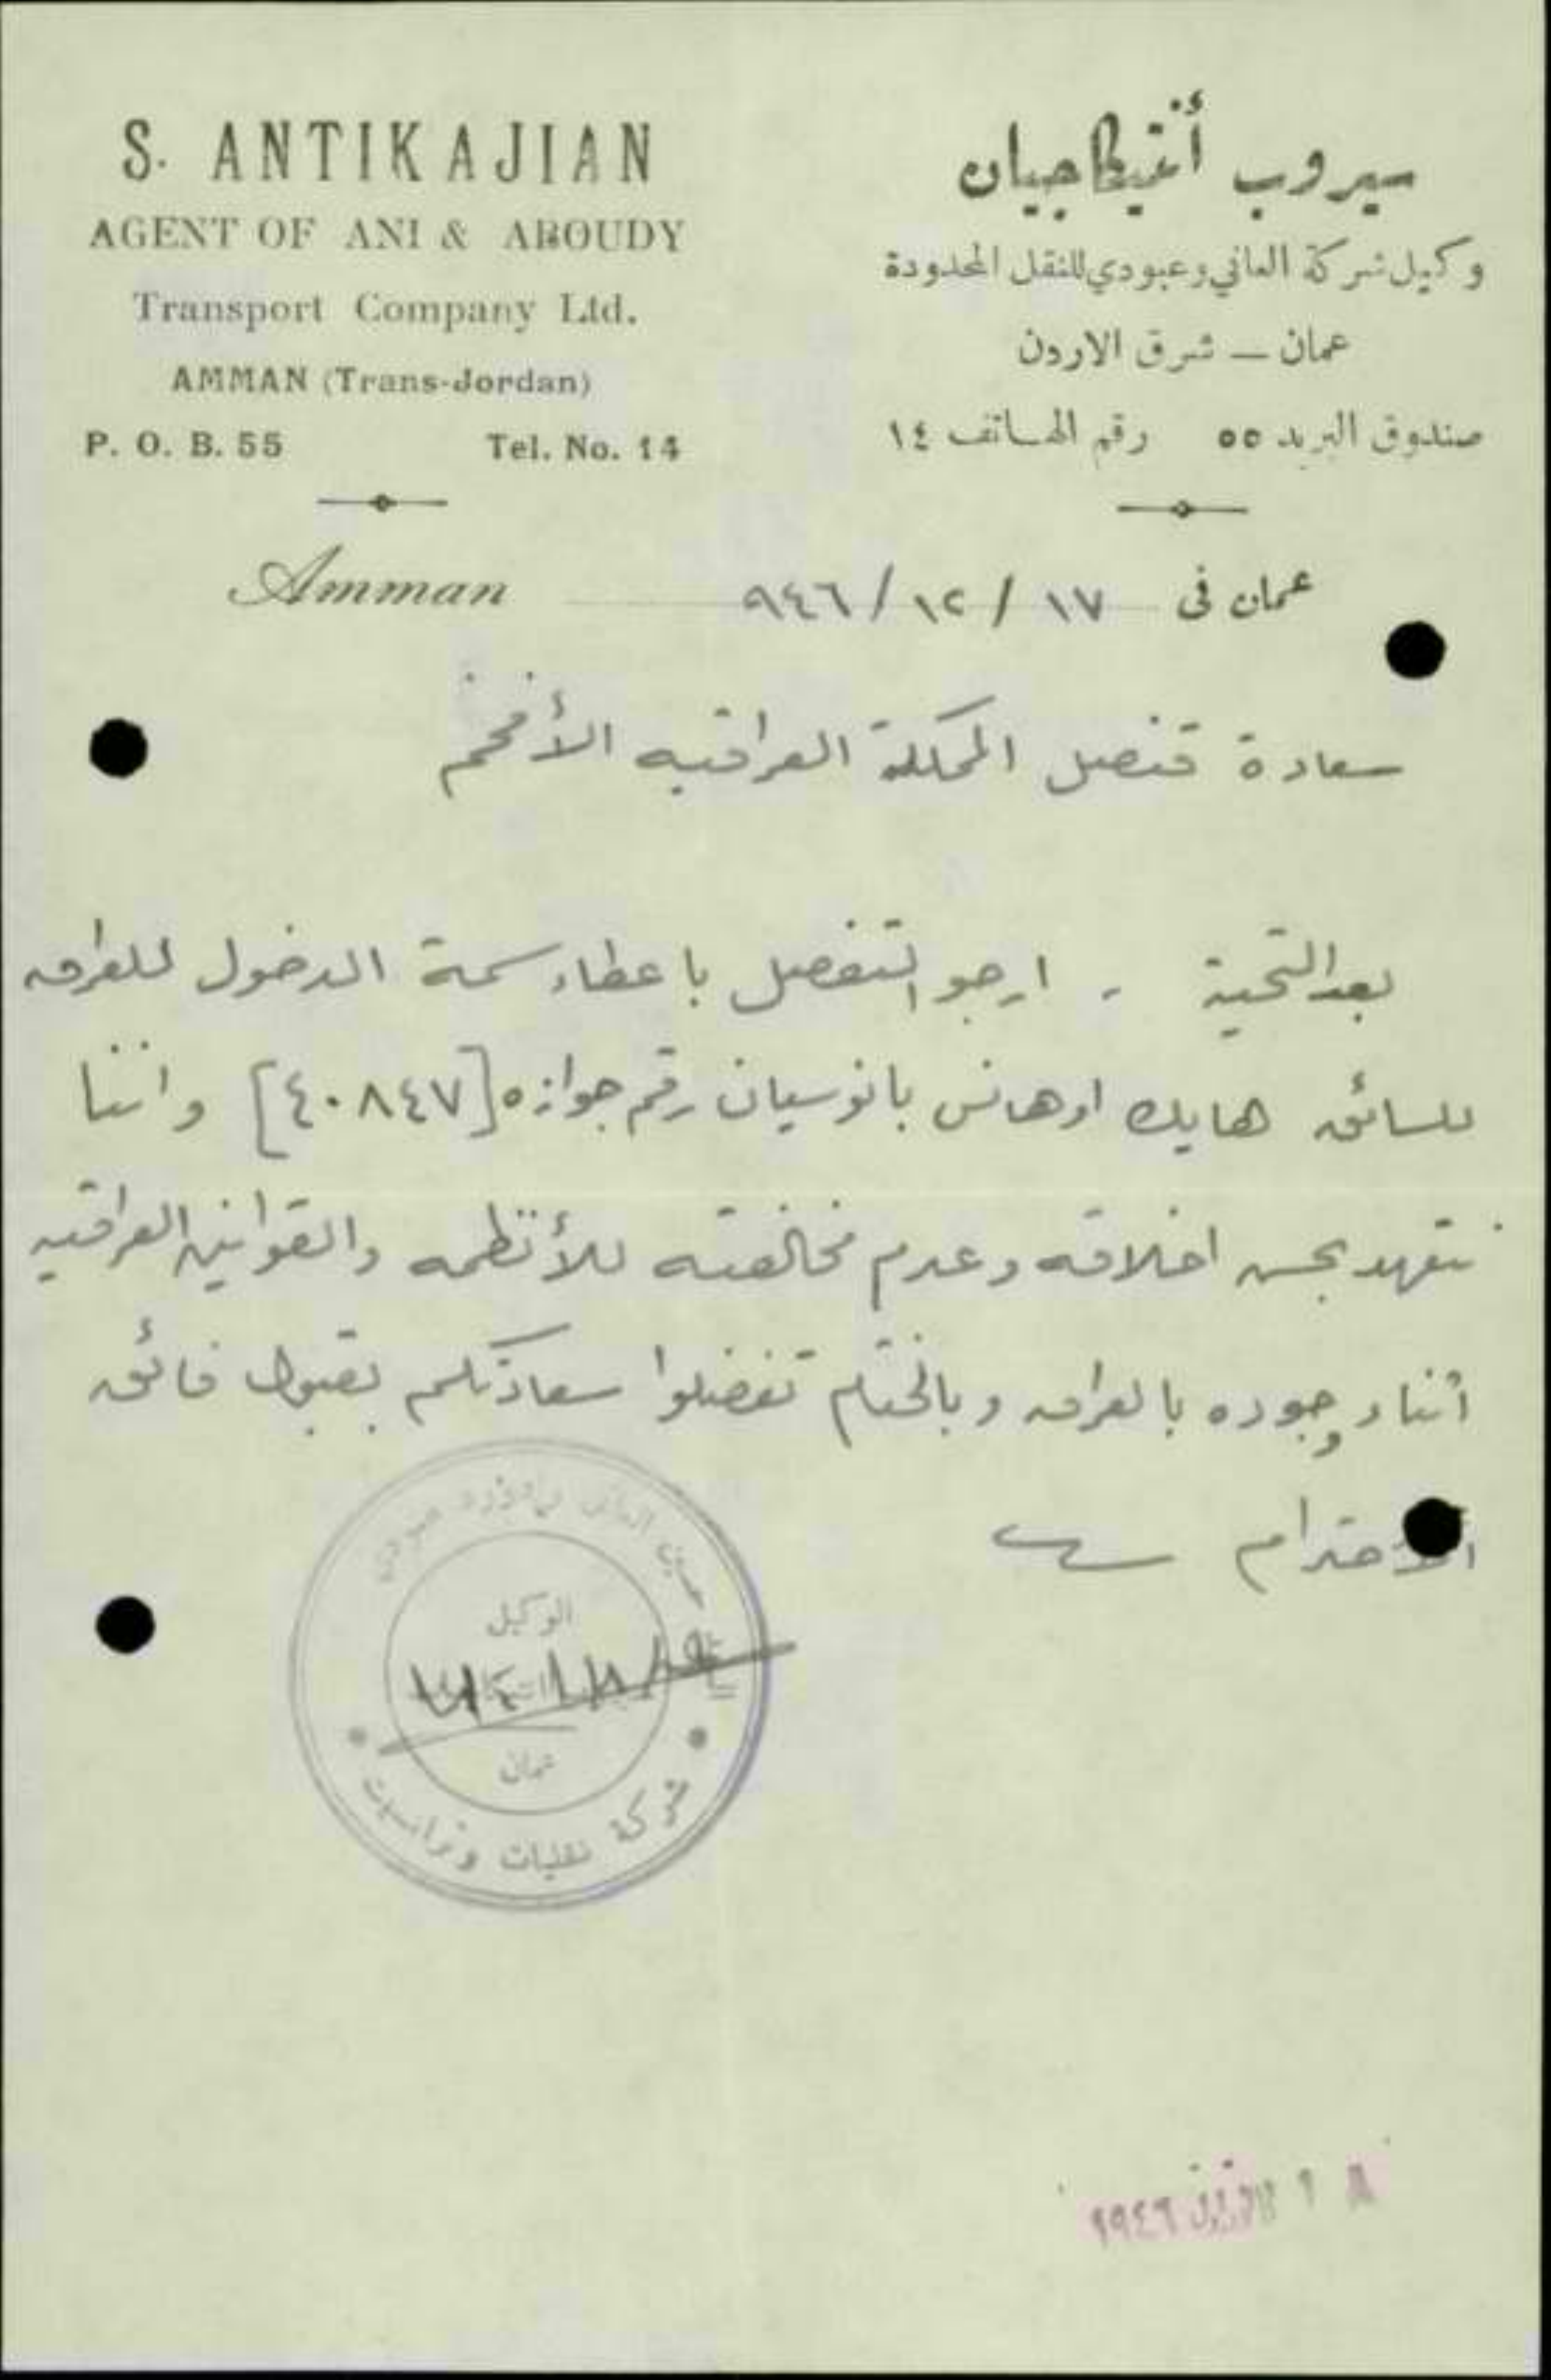 S. ANTIKAJIAN
AGENT OF ANI & ABOUDY
Transport Company Ltd.
AMMAN (Trans-Jordan)
P. O. B. 55 Tel. No. 14
سيروب أنتيكاجيان
وكيل شركة العاني وعبودي للنقل المحدودة
عمان — شرق الاردن
صندوق البريد ٥٥ رقم الهاتف ١٤
Amman عمان في ١٧ / ١٢ / ٩٤٦
سعادة قنصل المملكة العراقيه الأفخم
بعد التحية . ارجو التفضل باعطاء سمة الدخول للعراق
للسائق هايك اوهانس بانوسيان رقم جوازه [٤٠٨٤٧] واننا
نتعهد بحسن اخلاقه وعدم مخالفته للأنظمه والقوانين العراقيه
أثناء وجوده بالعراق وبالختام تفضلوا سعادتكم بقبول فائق
الاحترام
الوكيل
عمان
شركة نقليات وترانسيت